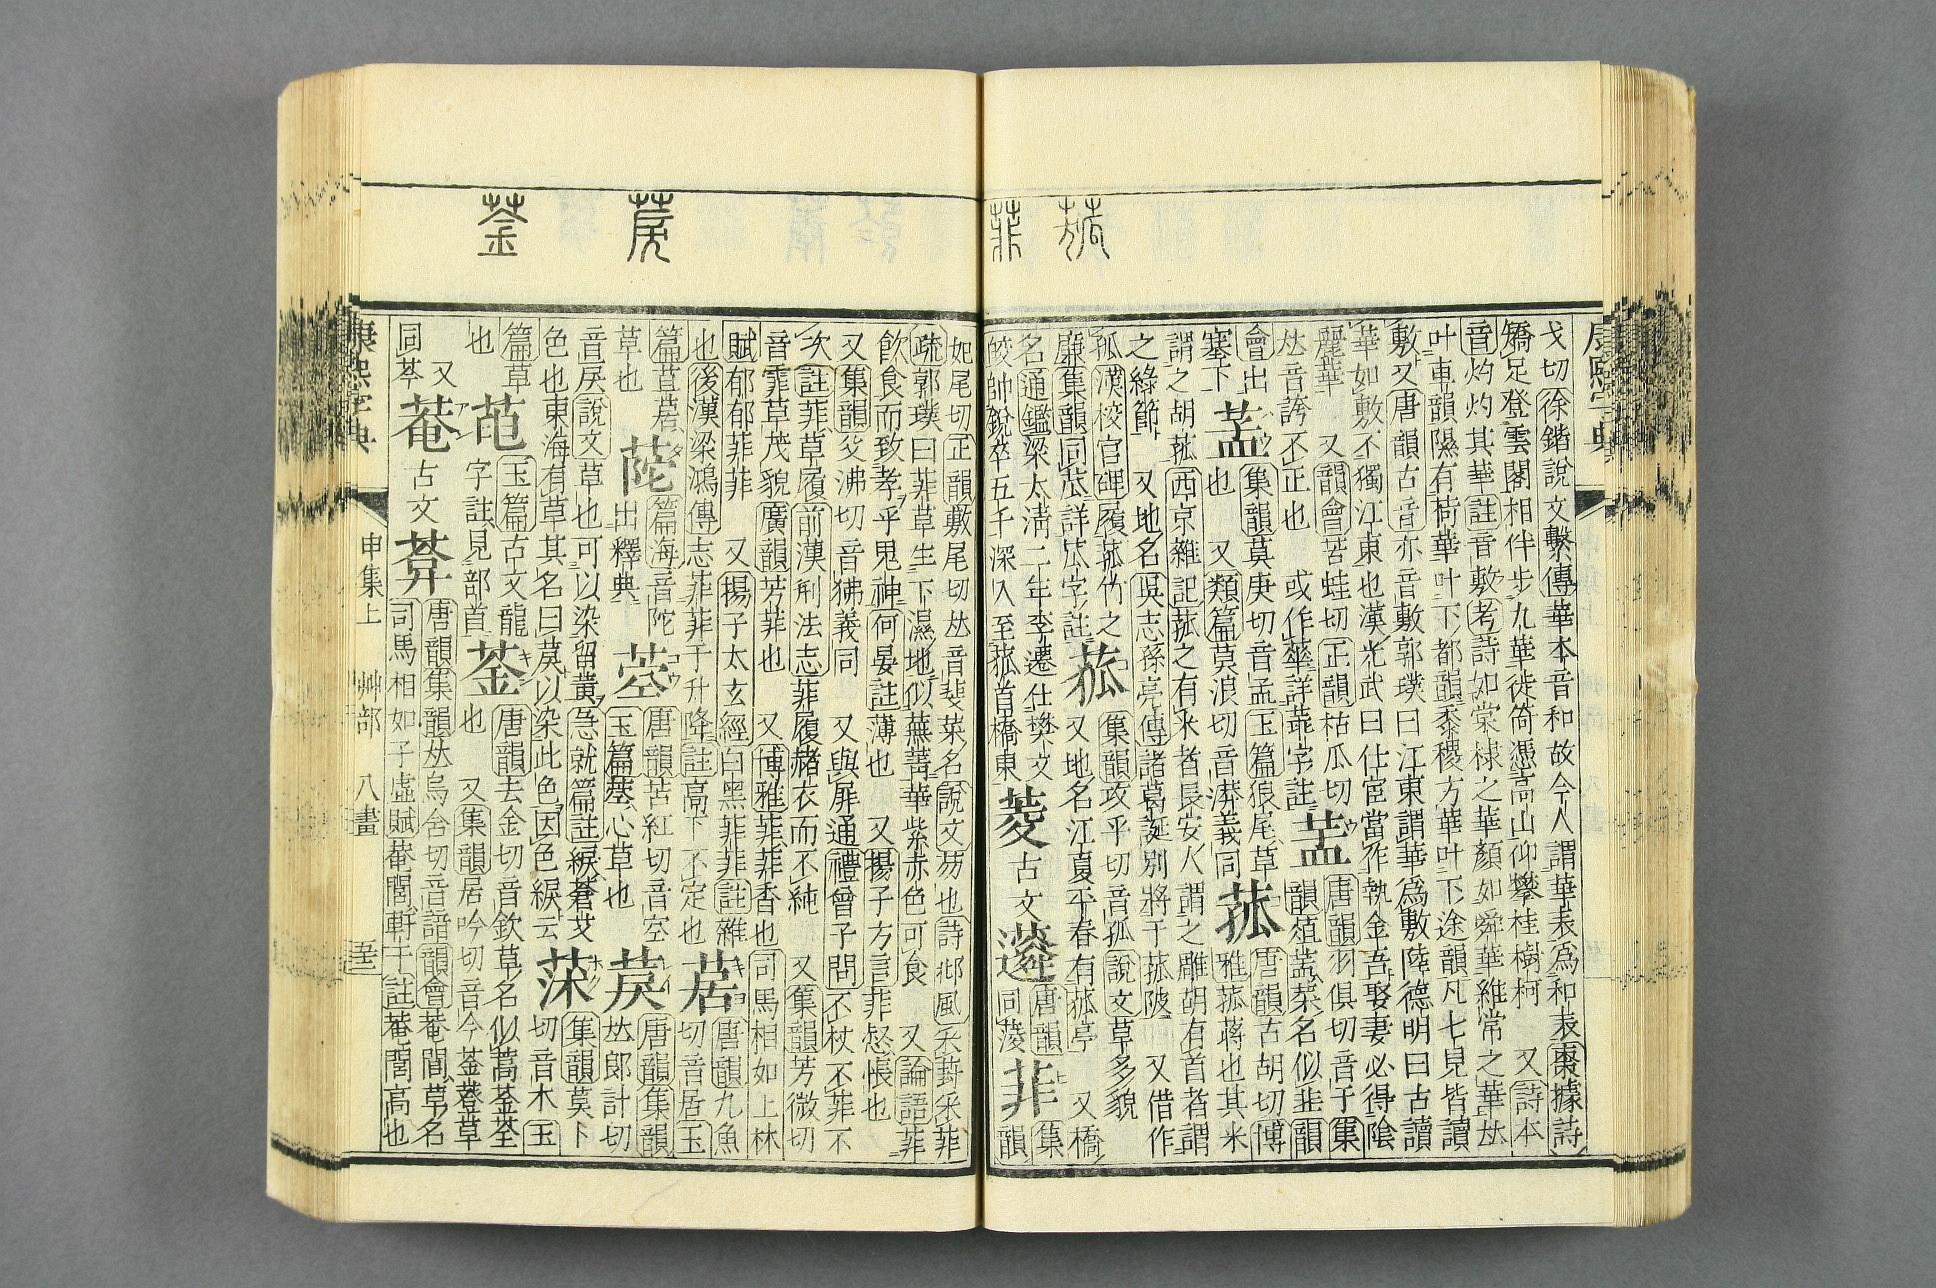 戈切徐鍇說文繫傳華本音和故今人謂華表爲和表棗據詩
矯足登雲閣相伴步九華徙倚憑高山仰攀桂樹柯 又詩本
音灼灼其華註音敷考詩如棠棣之華顏如舜華維常之華𠀤
叶車韻隰有荷華叶下都韻黍稷方華叶下途韻凡七見皆讀
敷又唐韻古音亦音敷郭璞曰江東謂華爲敷陸德明曰古讀
華如敷不獨江東也漢光武曰仕宦當作執金吾娶妻必得陰
麗華 又韻會苦蛙切正韻枯瓜切
𠀤音誇不正也 或作 詳 字註
唐韻羽俱切音于集
韻 菜名似韭韻
會出
塞下
𦯔
集韻莫庚切音孟玉篇狼尾草
也 又類篇莫浪切音漭義同
菰
唐韻古胡切博
雅菰蔣也其米
謂之胡菰西京雜記菰之有米者長安人謂之雕胡有首者謂
之綠節 又地名吳志孫亮傳諸葛誕別將于菰陂 又借作
孤漢校官碑履菰竹之
廉集韻同苽詳苽字註
集韻攻乎切音孤說文草多貌
又地名江夏平春有菰亭 又橋
名通鑑梁太淸二年李遷仕樊文
皎帥銳卒五千深入至菰首橋東
菱
古文
唐韻
同蔆
菲
集
韻
妃尾切正韻敷尾切𠀤音斐菜名說文芴也詩邶風采葑采菲
疏郭璞曰菲草生下濕地似蕪菁華紫赤色可食 又論語菲
飮食而致孝乎鬼神何晏註薄也 又揚子方言菲惄悵也
又集韻父沸切音狒義同 又與屝通禮曾子問不杖不菲不
次註菲草履前漢刑法志菲履赭衣而不純 又集韻芳微切
音霏草茂貌廣韻芳菲也 又博雅菲菲香也司馬相如上林
賦郁郁菲菲 又揚子太玄經白黑菲菲註雜
也後漢梁鴻傳志菲菲于升降註高下不定也
菧
唐韻九魚
切音居玉
篇苴
草也
篇海音陀
出釋典
𦱇
唐韻苦紅切音空
玉篇 心草也
莀
唐韻集韻
𠀤郎計切
音戾說文草也可以染留黃急就篇註綟蒼艾
色也東海有草其名曰莀以染此色因色綟云
莯
集韻莫卜
切音木玉
篇草
也
萉
玉篇古文龍
字註見部首
菳
唐韻去金切音欽草名似蒿菳荎
也 又集韻居吟切音今菳䔲草
又
同芩
菴
古文
唐韻集韻𠀤烏含切音諳韻會菴䕡草名
司馬相如子虛賦菴閭軒于註菴閭蒿也
康熙字典 申集上 艸部 八畫